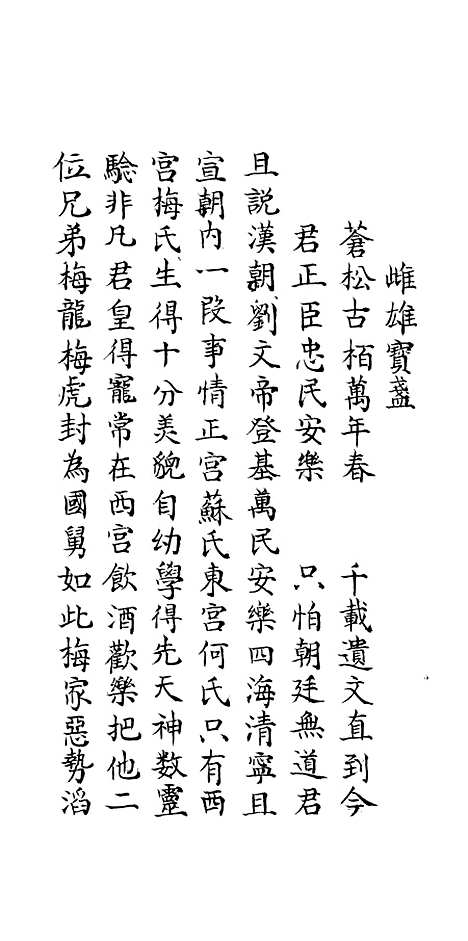 雌雄寶盞
蒼松古栢萬年春　千載遺文直到今
君正臣忠民安樂　只怕朝廷無道君
且説漢朝劉文帝登基萬民安樂四海清寧且
宣朝内一段事情正宮蘇氏東宮何氏只有西
宮梅氏生得十分美貌自幼學得先天神数靈
驗非凡君皇得寵常在西宮飲酒歡樂把他二
位兄弟梅龍梅虎封為國舅如此梅家惡勢滔